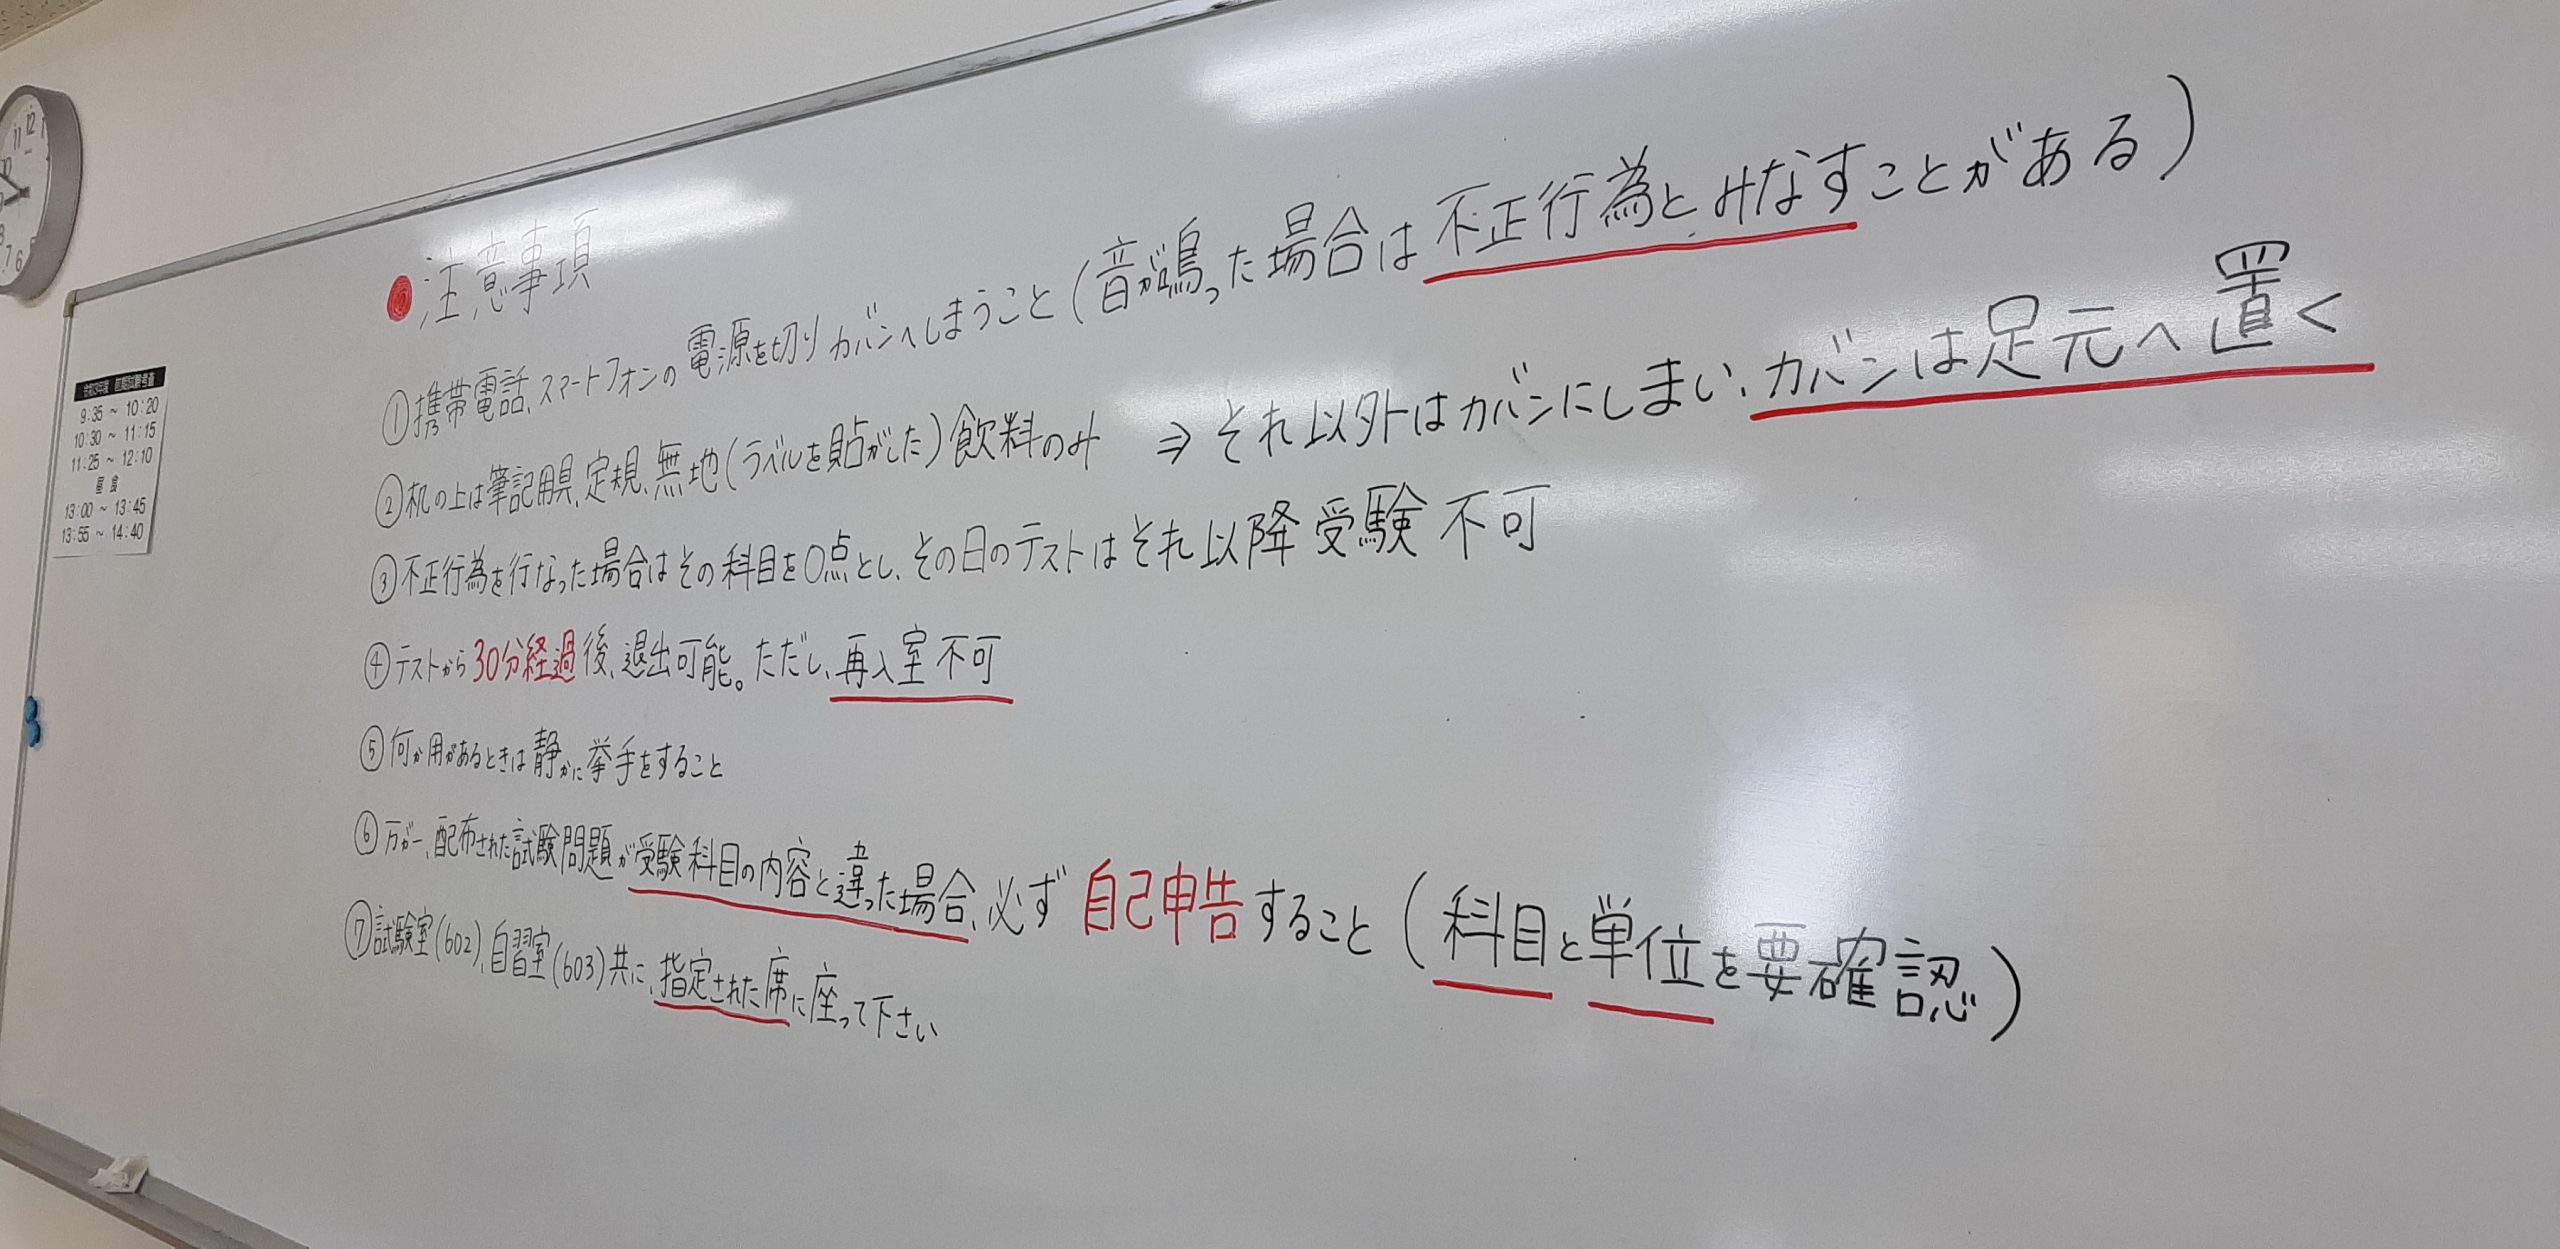 12
11
10
7 6
令和3年度 前期試験考査
9:35 ~ 10:20
10:30 ~ 11:15
11:25 ~ 12:10
昼 食
13:00 ~ 13:45
13:55 ~ 14:40
注意事項
①携帯電話、スマートフォンの電源を切りカバンへしまうこと(音が鳴った場合は不正行為とみなすことがある)
②机の上は筆記用具、定規、無地(ラベルを貼がした)飲料のみ ⇒ それ以外はカバンにしまい、カバンは足元へ置く
③不正行為を行なった場合はその科目を0点とし、その日のテストはそれ以降受験不可
④テストから30分経過後、退出可能。ただし、再入室不可
⑤何か用があるときは静かに挙手をすること
⑥万が一、配布された試験問題が受験科目の内容と違った場合、必ず自己申告すること(科目と単位を要確認)
⑦試験室(602)、自習室(603)共に、指定された席に座って下さい